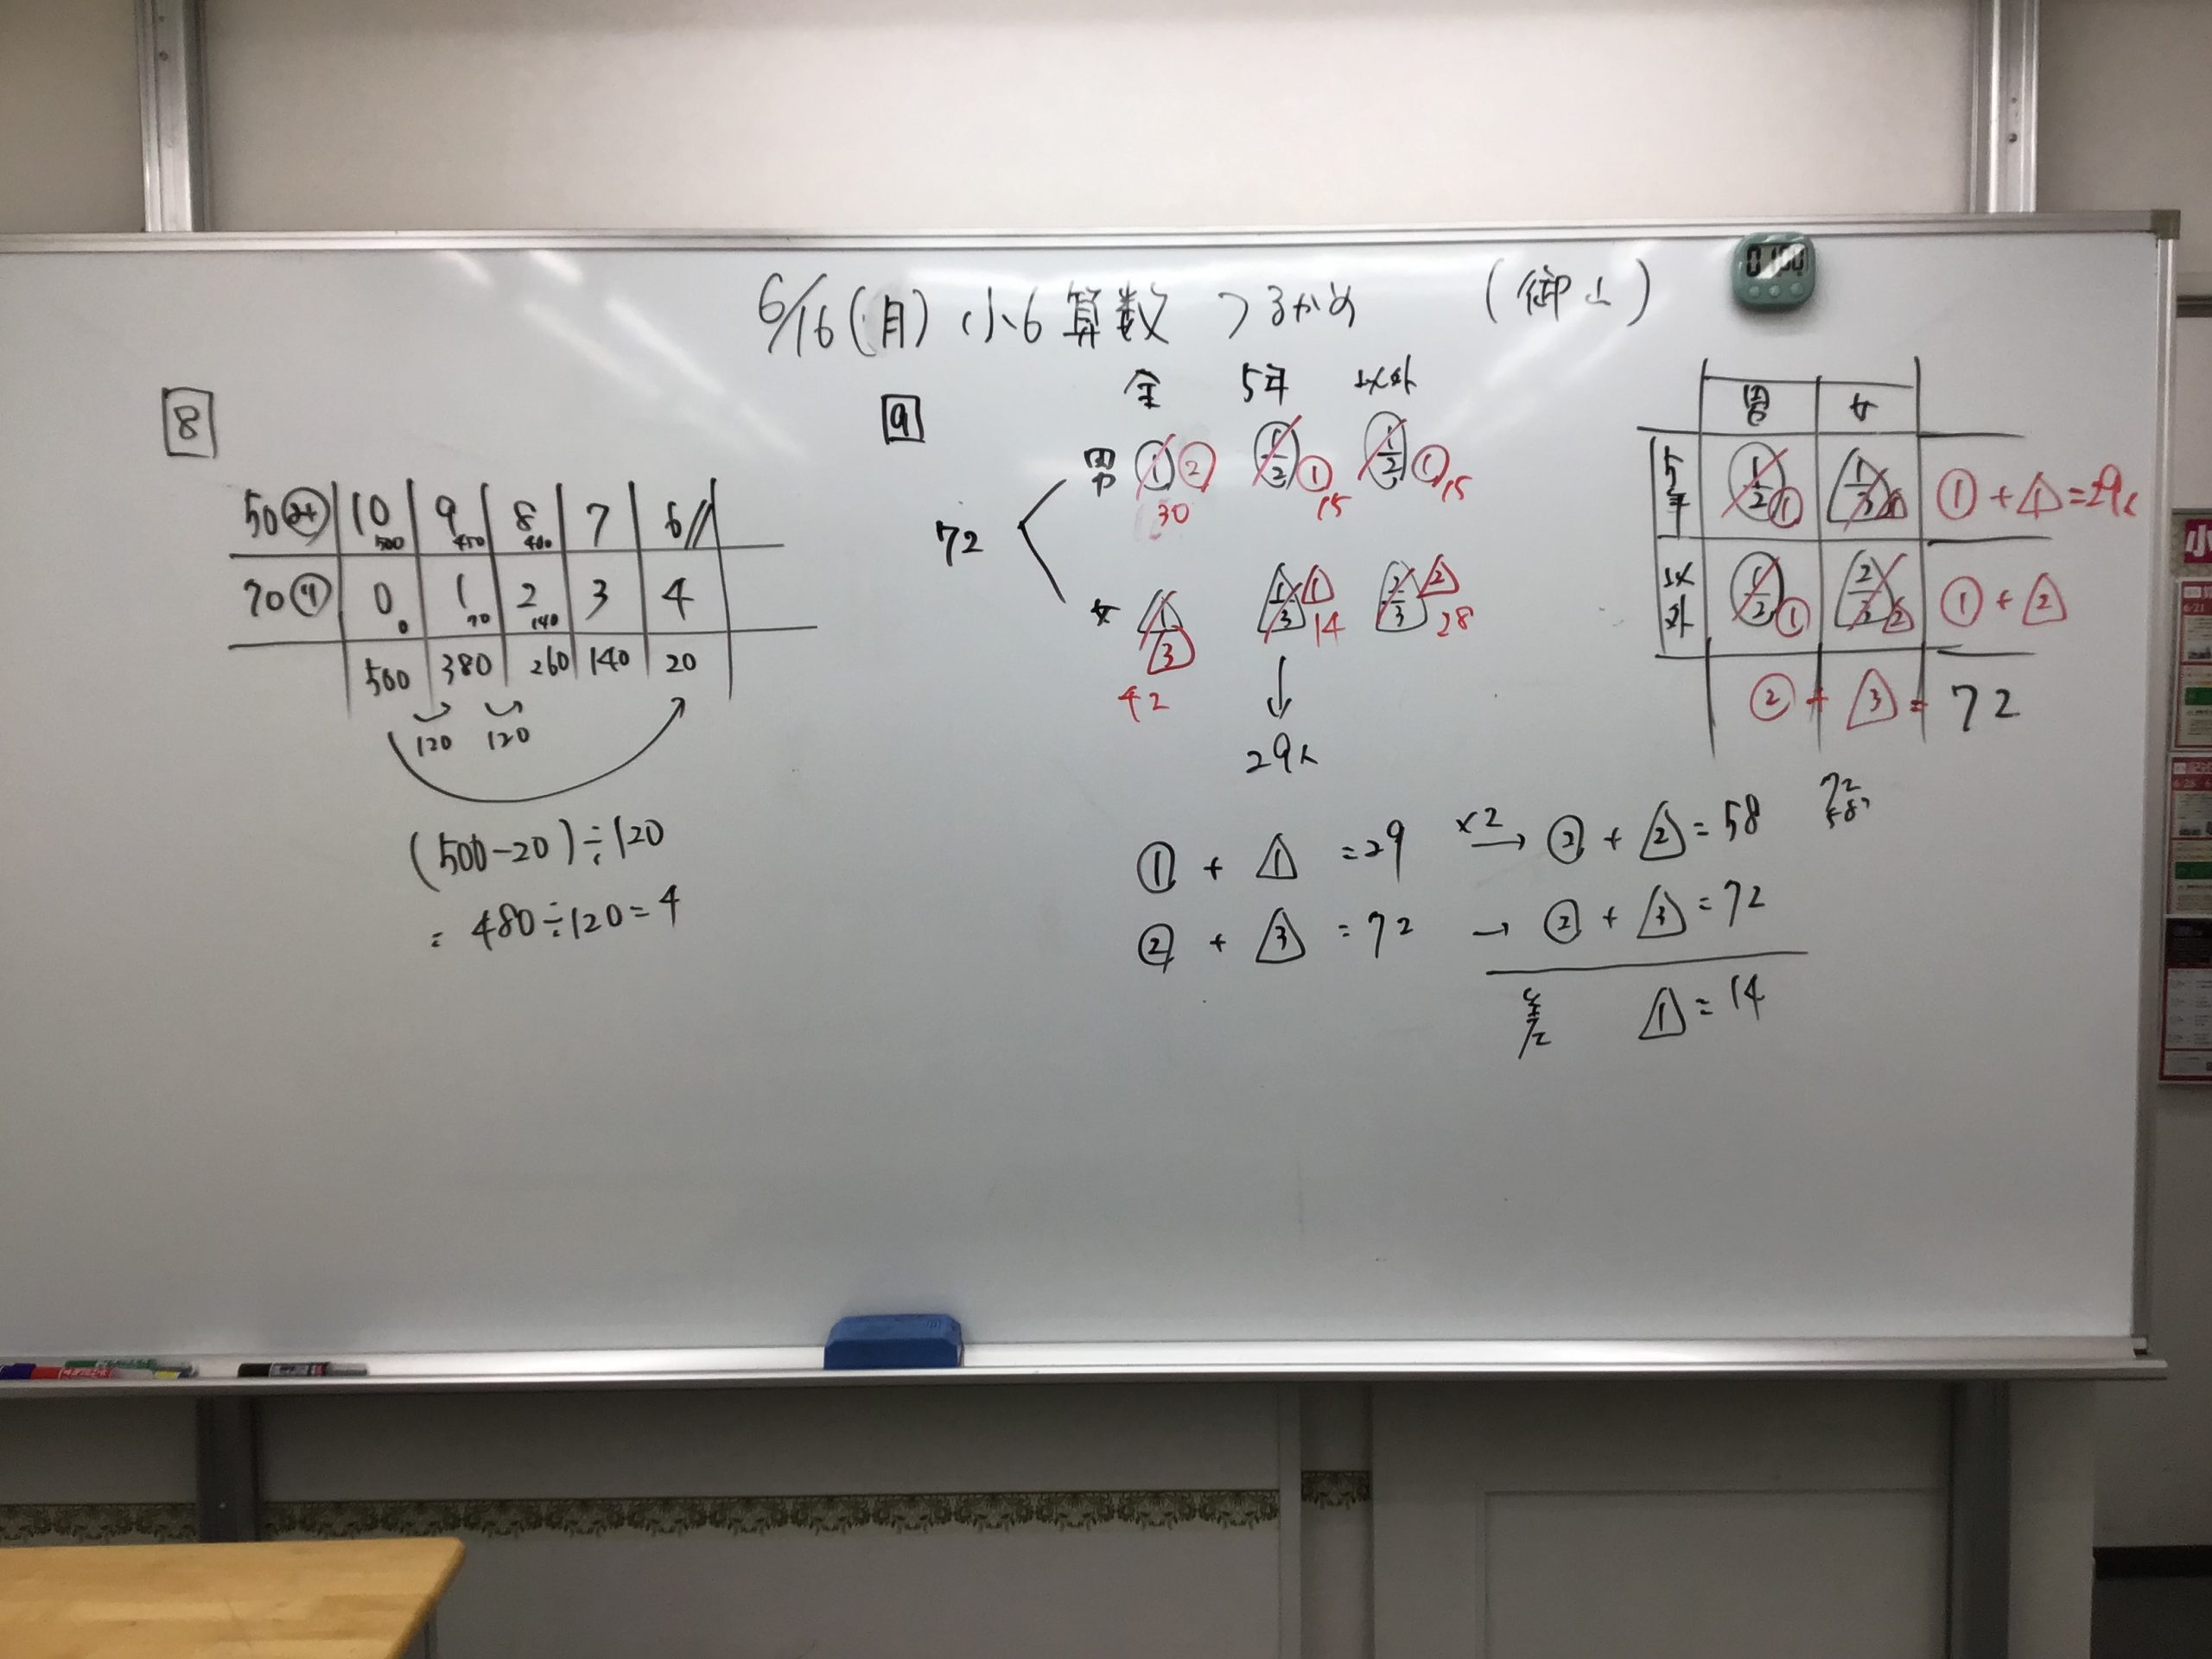 6/16(月) 小6算数 つるかめ
8
50 10 9 8 7 6
500 450 400
70 0 1 2 3 4
0 70 140
500 380 260 140 20
120 120
(500-20)÷120
= 480÷120=4
9
全 5年 以外
72
男 ① ② 1/2 ① 1/2 ①
30 15 15
女 1 3 1/3 1 2/3 2
42 14 28
↓
29人
① + 1 =29 ×2→ ② + 2 = 58
② + 3 = 72 → ② + 3 = 72
差 1 = 14
72
58
男 女
5年 1/2 ① 1/3 1 ① + 1 = 29人
以外 1/2 ① 2/3 2 ① + 2
② + 3 = 72